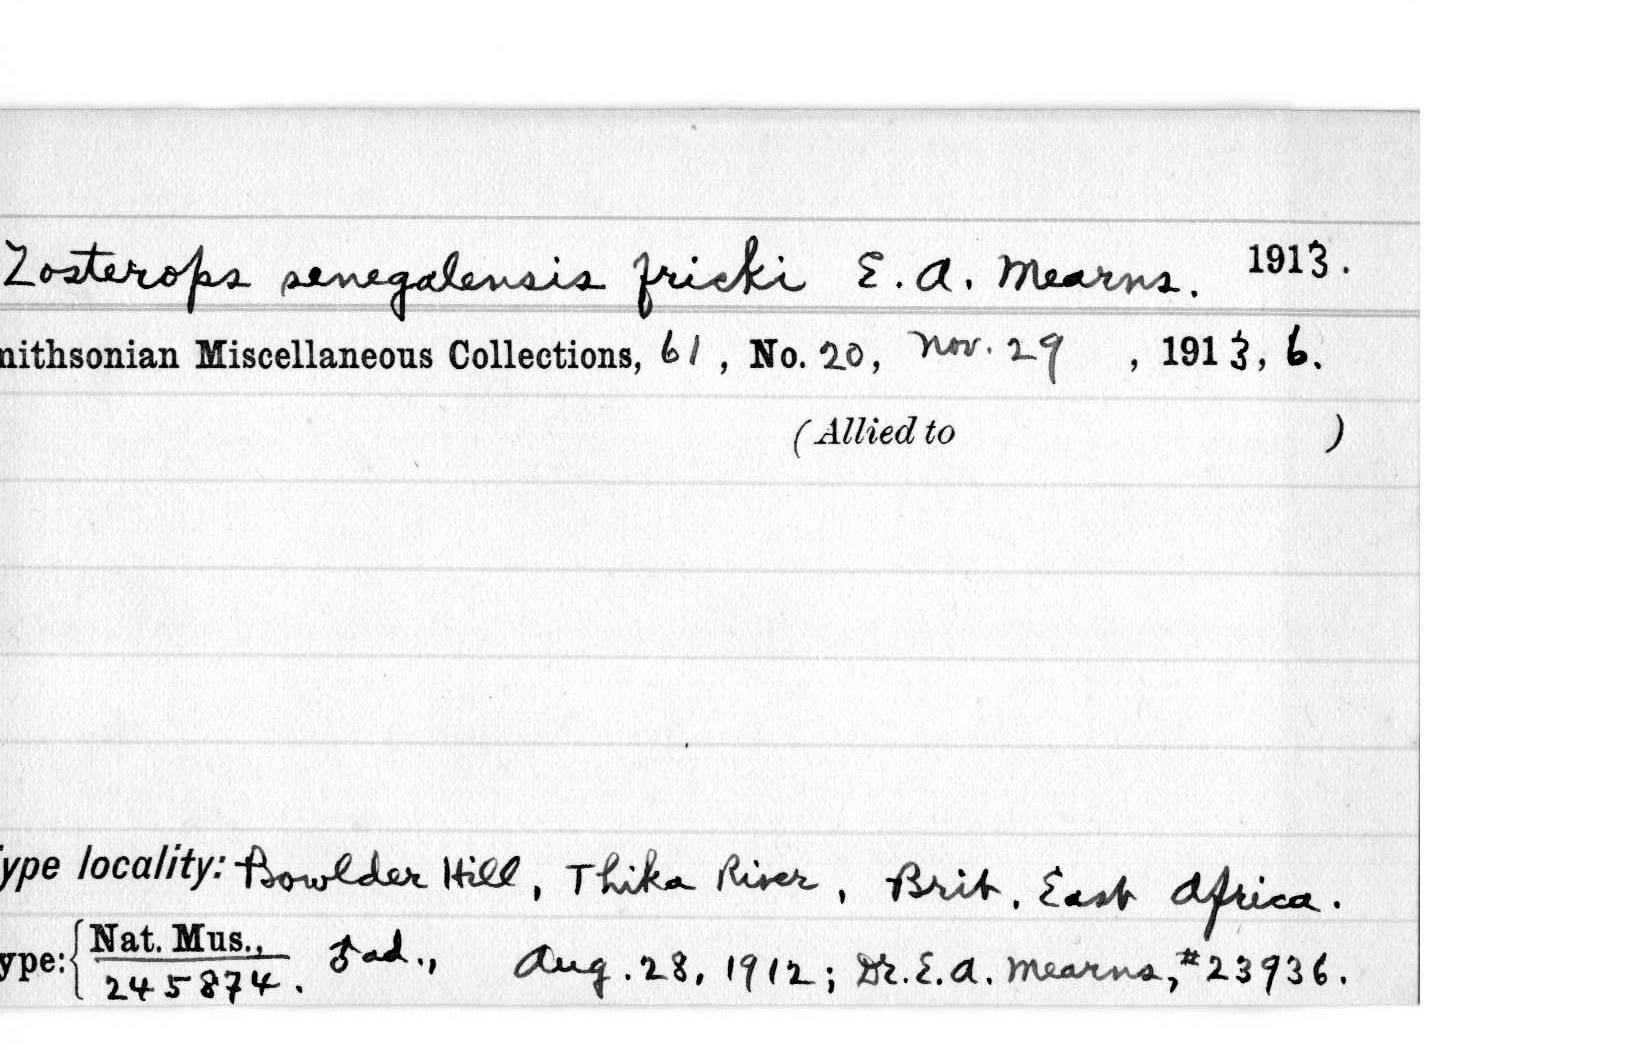 Zosterops senegalensis fricki E. A. Mearns. 1913.
mithsonian Miscellaneous Collections, 61, No. 20, Nov. 29, 1913, 6.
(Allied to )
ype locality: Bowlder Hill, Thika River, Brit. East Africa.
ype: { Nat. Mus., ♂ ad., Aug. 28, 1912; Dr. E. A. Mearns, #23936.
245874.